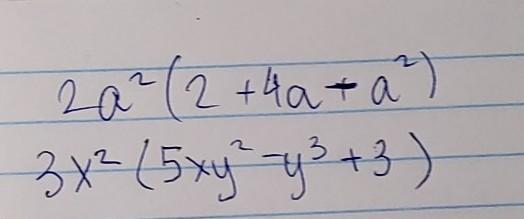 2a²(2+4a+a²)
3x²(5xy²-y³+3)